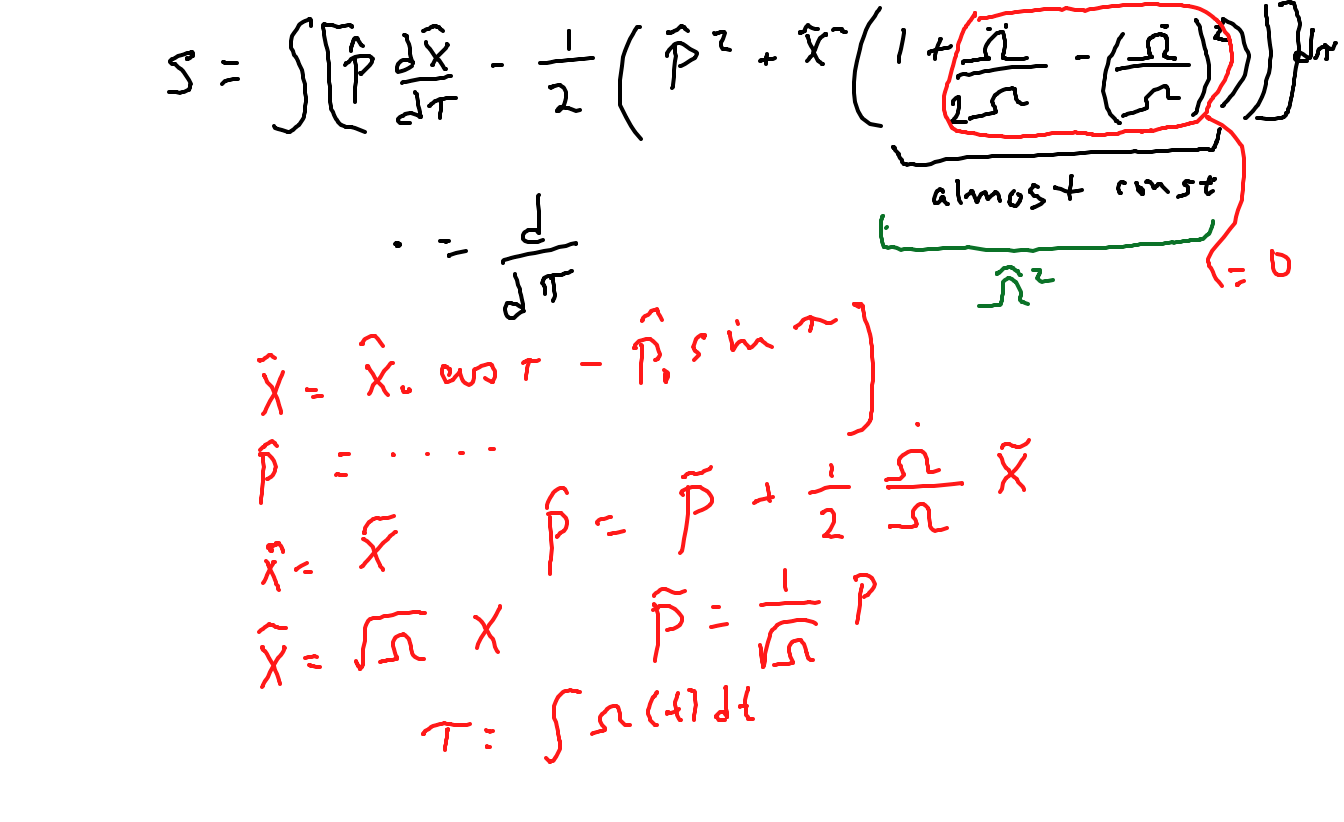 S = ∫ [ p̂ dx̂/dτ − 1/2 ( p̂² + x̂² ( 1 + Ω̈/2Ω − (Ω̇/Ω)² ) ) ] dτ
almost const
· = d/dτ
Ω̂²
= 0
x̂ = x̂₀ cos τ − p̂₀ sin τ
p̂ = . . . .
x̂ = x̃ p̂ = p̃ + 1/2 Ω̇/Ω x̃
x̃ = √Ω x p̃ = 1/√Ω p
τ = ∫ Ω(t) dt